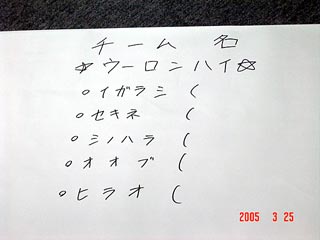 チーム 名
☆ウーロンハイ☆
○イガラシ (
○セキネ (
○シノハラ (
○オオブ (
○ヒラオ (
2005 3 25